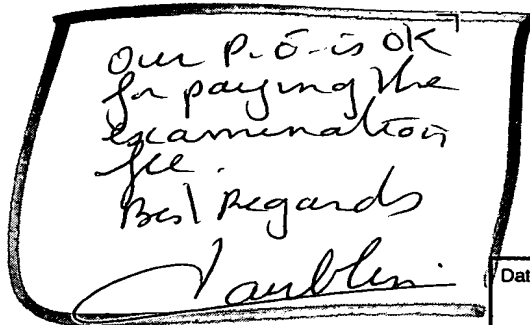 Our P.O. is OK
for paying the
examination
fee.
Best Regards
Dat